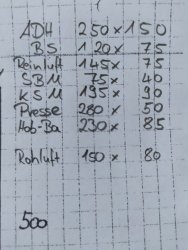 ADH 250 x 150
BS 120 x 75
Reinluft 145 x 75
SBM 75 x 40
KSM 195 x 90
Presse 280 x 50
Hob-Ba 230 x 85
Rohluft 150 x 80
500